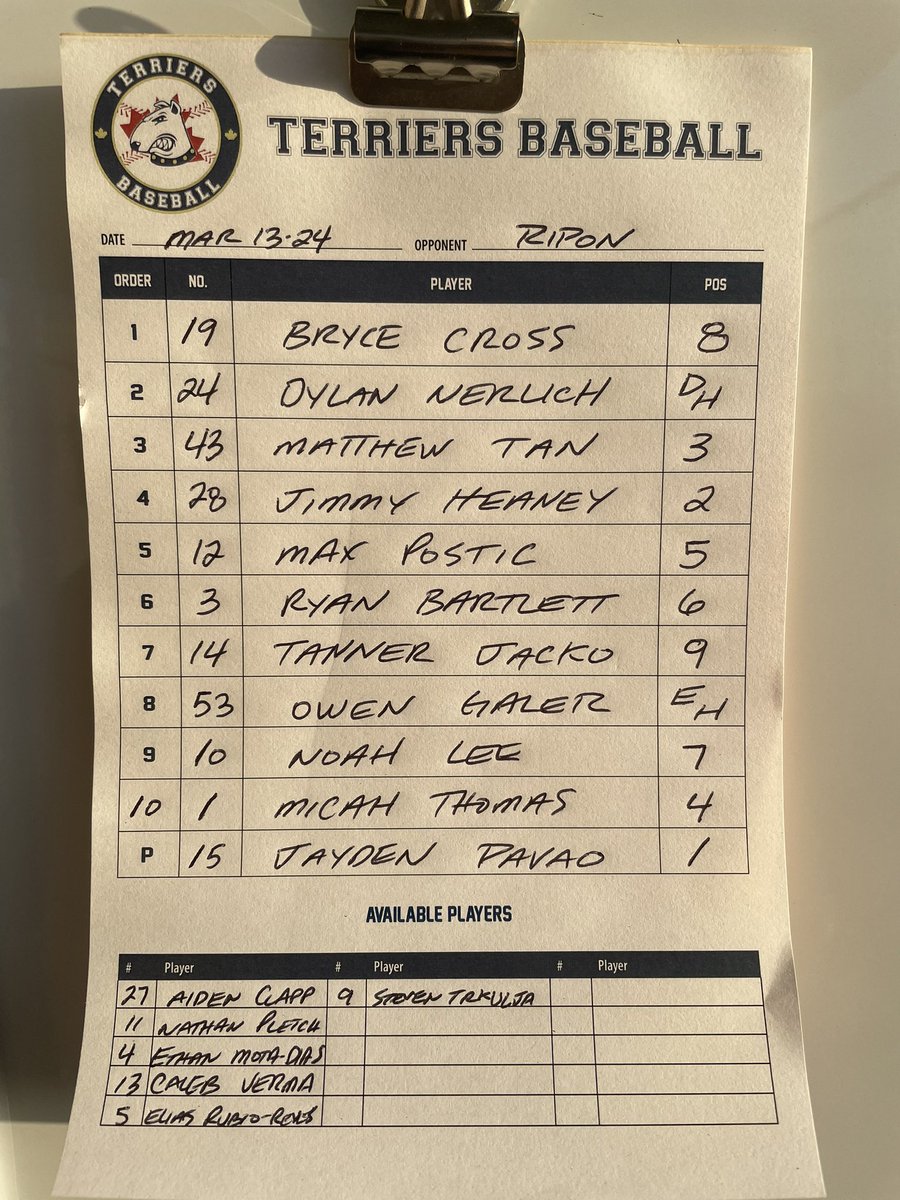 TERRIERS
BASEBALL
TERRIERS BASEBALL
DATE MAR 13-24 OPPONENT RIPON
ORDER NO. PLAYER POS
1 19 BRYCE CROSS 8
2 24 DYLAN NERLICH DH
3 43 MATTHEW TAN 3
4 28 JIMMY HEANEY 2
5 12 MAX POSTIC 5
6 3 RYAN BARTLETT 6
7 14 TANNER JACKO 9
8 53 OWEN GALER EH
9 10 NOAH LEE 7
10 1 MICAH THOMAS 4
P 15 JAYDEN PAVAO 1
AVAILABLE PLAYERS
# Player # Player # Player
27 AIDEN CLAPP 9 STEVEN TRKULJA
11 NATHAN PLETCH
4 ETHAN MOTA-DIAS
13 CALEB VERMA
5 ELIAS RUBIO-REYES